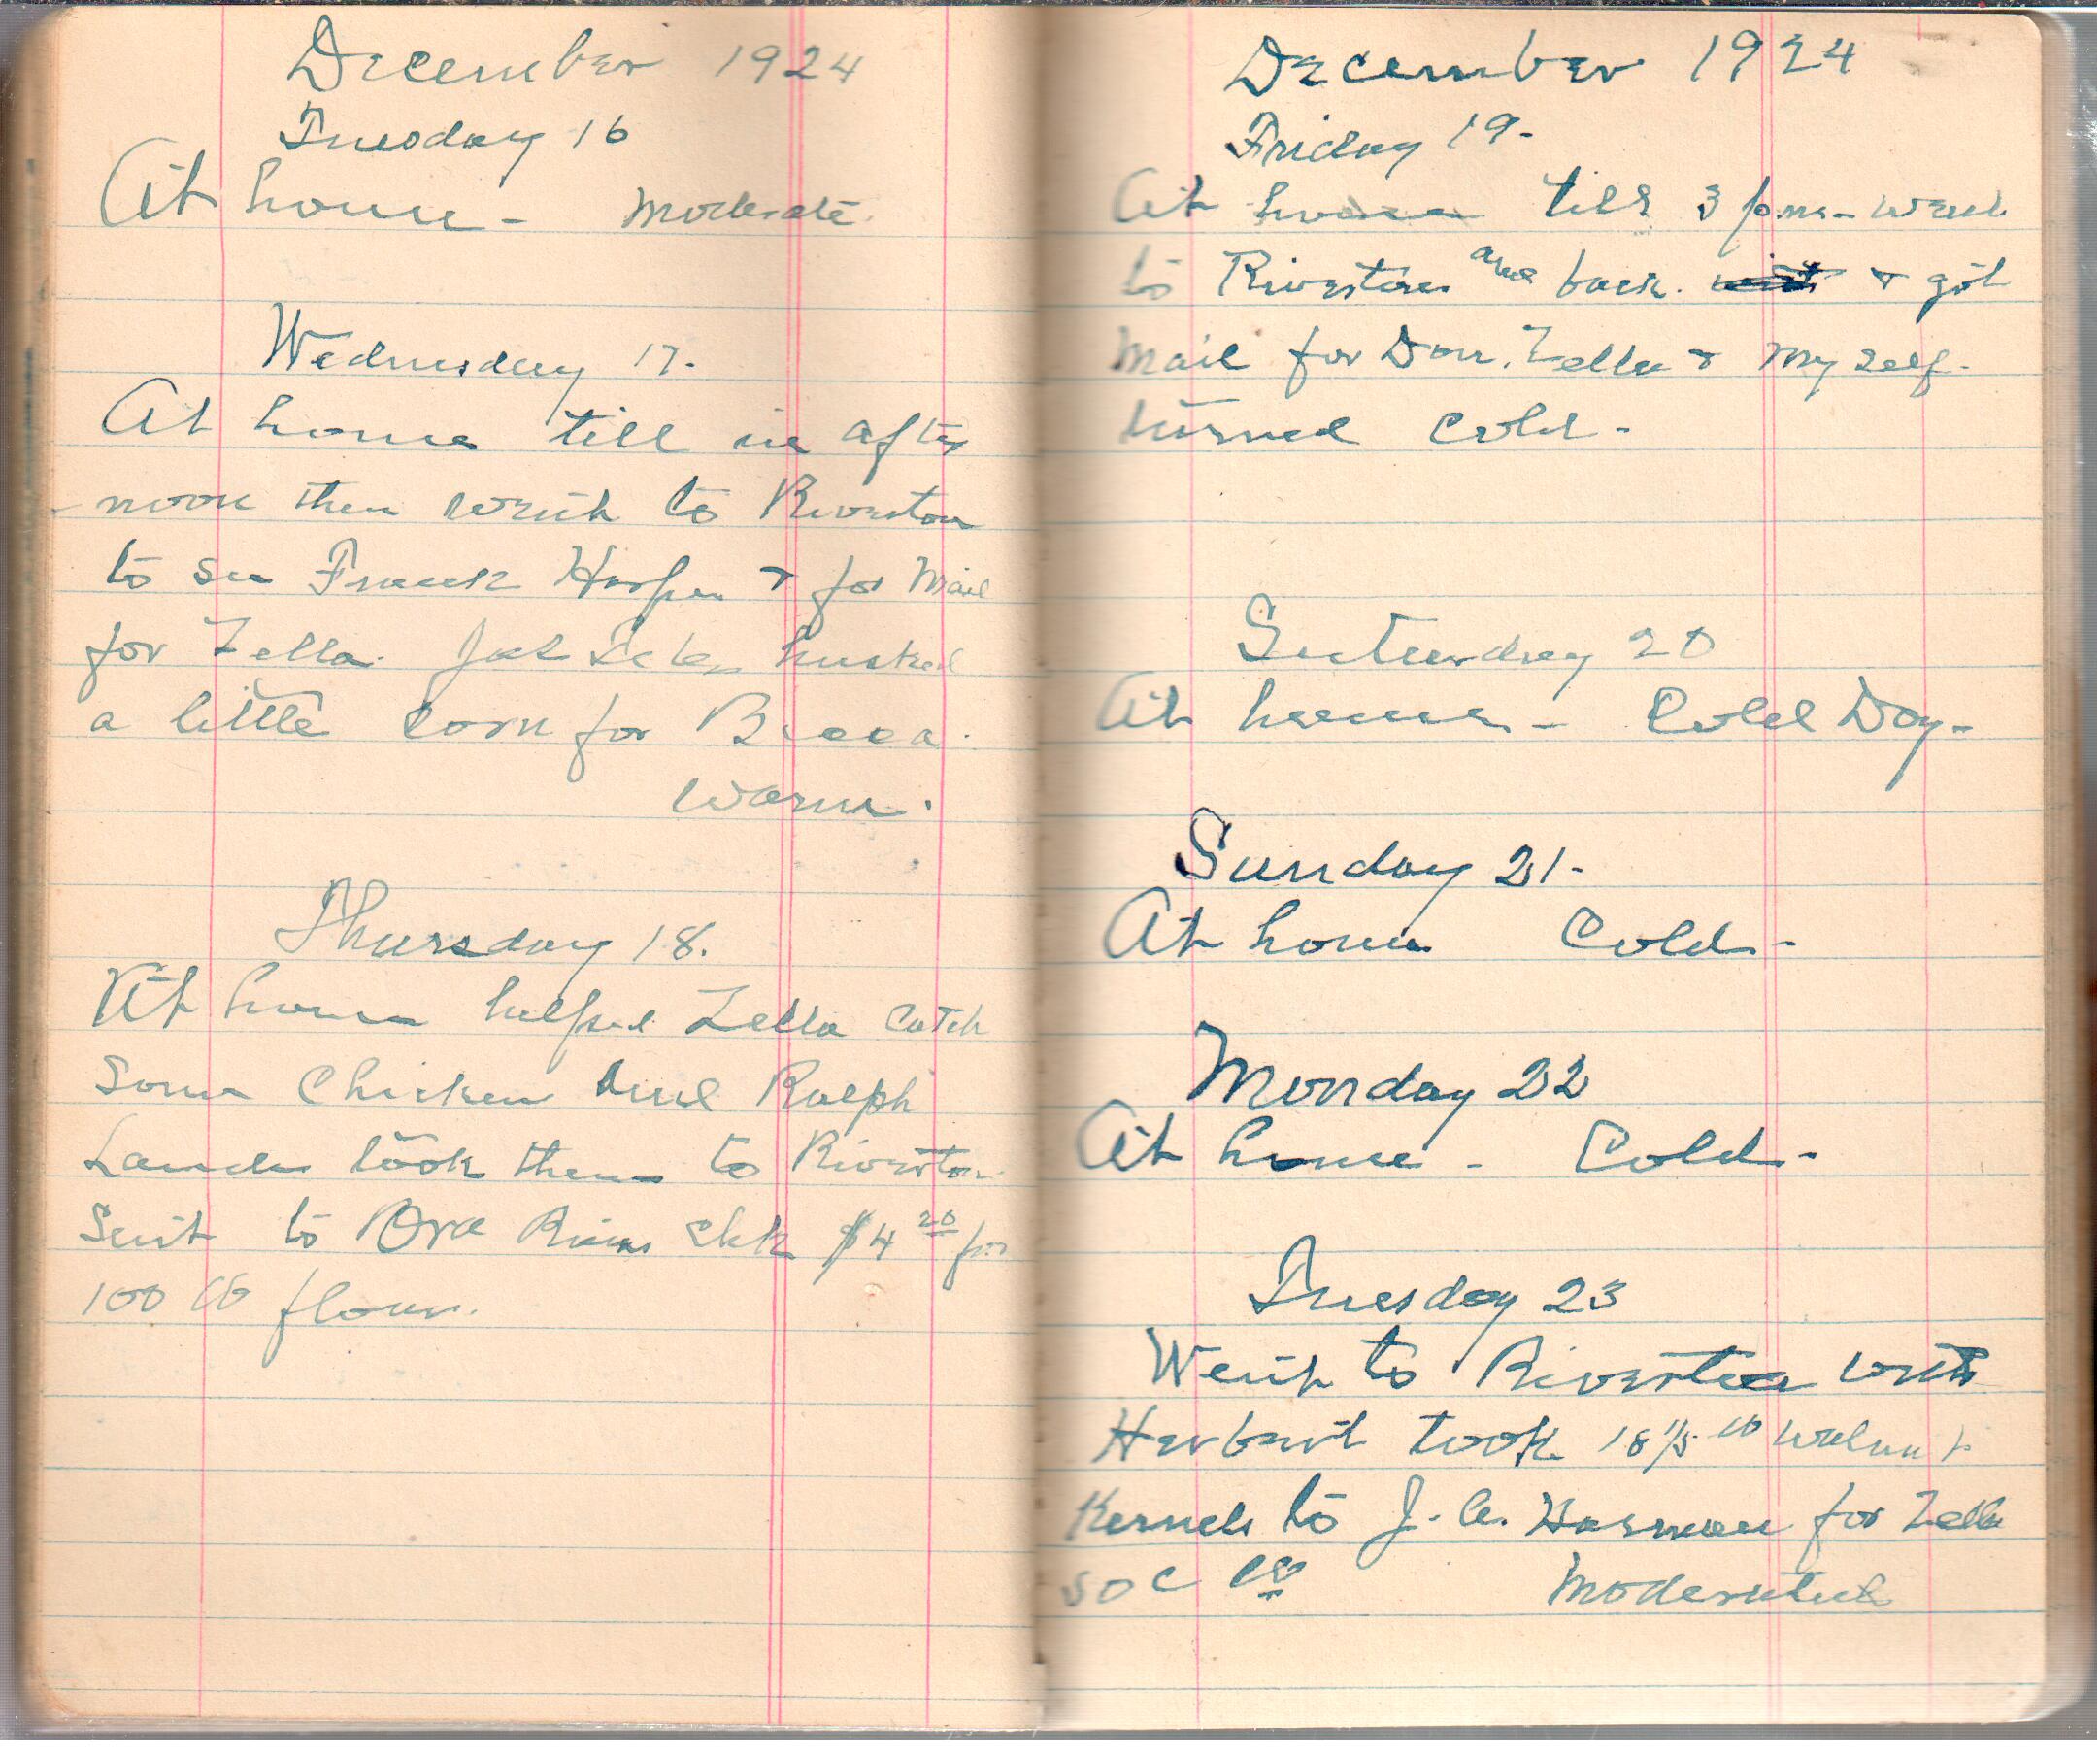 December 1924
Tuesday 16
At home - Moderate.
Wednesday 17.
At home till in after
-noon then went to Riverton
to see Frank & for Mail
for Zella. husked
a little corn for
Warm.
Thursday 18.
At home helped Zella catch
Some Chicken and Ralph
Landes took them to Riverton.
Sent to Ora chk $4 20 for
100 lb flour.
December 1924
Friday 19-
At home till 3 p.m- went
to Riverton and back. & got
Mail for Don, Zella & My self-
turned cold-
Saturday 20
At home - Cold Day-
Sunday 21-
At home Cold-
Monday 22
At home - Cold-
Tuesday 23
Went to Riverton with
Herbert took 18 lb Walnut
Kernels to J. A. Harman for Zella
50 c lb Moderated